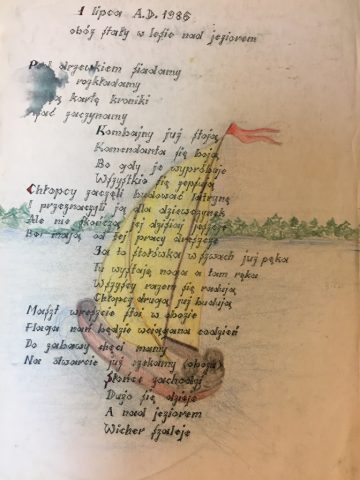 1 lipca A.D. 1986
obóz stały w lesie nad jeziorem
Pod drzewkiem siadamy
rozkładamy
kartę kroniki
zaczynamy
Kombajny już stoją
Komendanta się boją
Bo gdy je wypróbuje
Wszystkie się zepsują
Chłopcy zaczęli budować latrynę
I przeznaczyli ją dla dziewczynek
Ale nie skończą jej dzisiaj jeszcze
Bo mają od tej pracy dreszcze
Za to stołówka w szwach już pęka
Tu wystaje noga a tam ręka
Wszyscy razem się radują
Chłopcy drugą już budują
Maszt wreszcie stoi w obozie
Flaga nań będzie wciągana codzień
Do zabawy chęci mamy
Na otwarcie już czekamy (obozu)
Słońce zachodzi
Dużo się dzieje
A nad jeziorem
Wicher szaleje